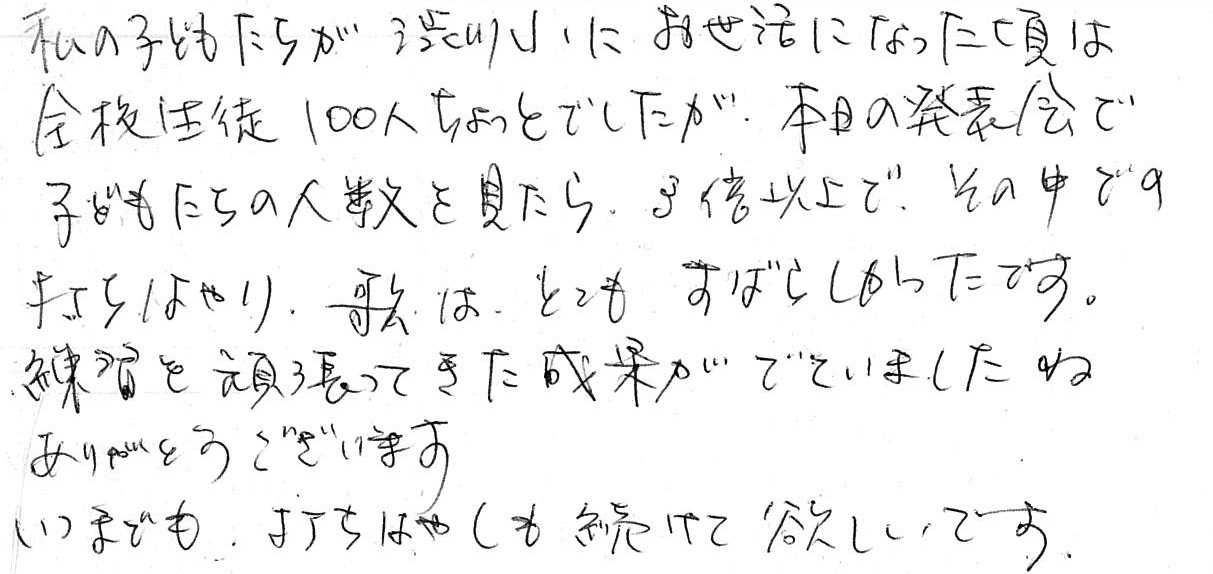 私の子どもたちが渋川小にお世話になった頃は
全校生徒100人ちょっとでしたが、本日の発表会で
子どもたちの人数を見たら、3倍以上で、その中での
打ちはやり、歌は、とても すばらしかったです。
練習を頑張ってきた成果がでていましたね
ありがとうございます
いつまでも、打ちはやしも続けて欲しいです。